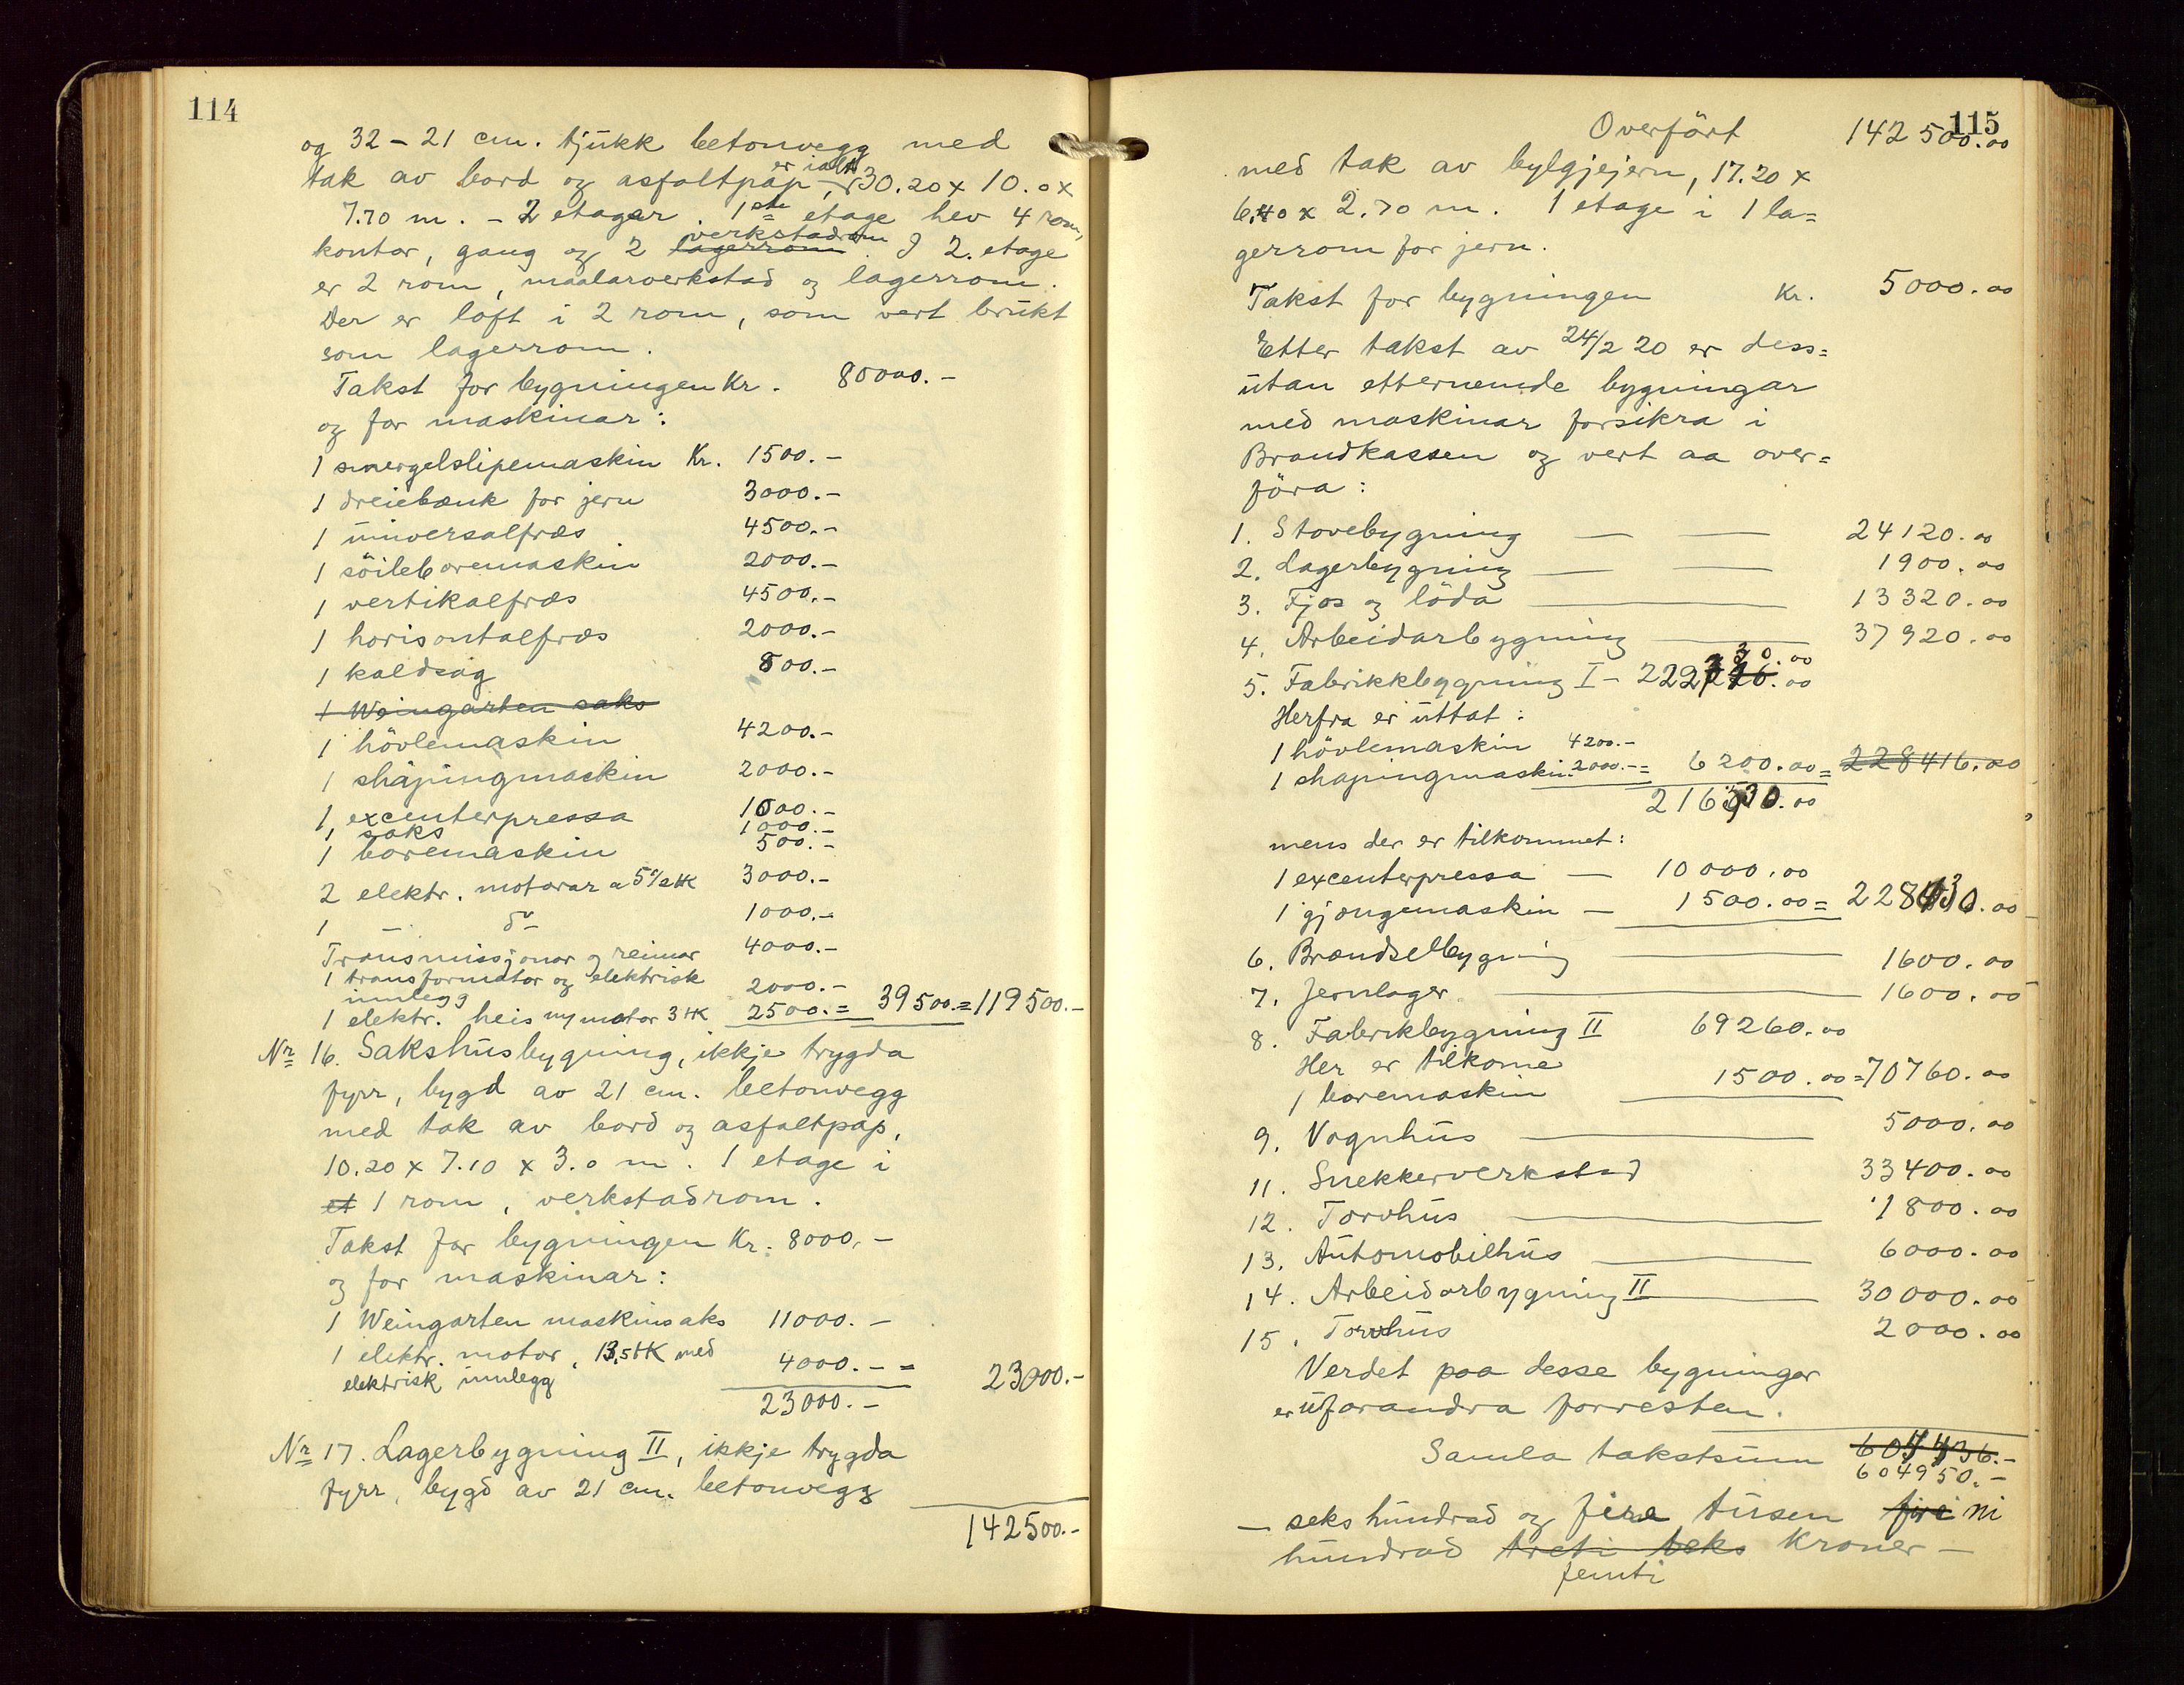 114
og 32 – 21 cm. tjukk betonvegg med
tak av bord og asfaltpap, er ialt 30.20 x 10.0 x
7.70 m. – 2 etagar. 1ste etage hev 4 rom,
kontor, gang og 2 lagerrom verkstadrom. I 2. etage
er 2 rom, maalarverkstad og lagerrom.
Der er loft i 2 rom, som vert brukt
som lagerrom.
Takst for bygningen Kr. 80000.–
og for maskinar:
1 smergelslipemaskin Kr. 1500.–
1 dreiebænk for jern 3000.–
1 universalfræs 4500.–
1 söileboremaskin 2000.–
1 vertikalfræs 4500.–
1 horisontalfræs 2000.–
1 kaldsag 800.–
1 Weingarten saks
1 hövlemaskin 4200.–
1 shapingmaskin 2000.–
1 excenterpressa 1000.–
1 saks 1000.–
1 boremaskin 500.–
2 elektr. motorar a 5½ HK 3000.–
1 – do – 1000.–
Transmissjonar og reimar 4000.–
1 transformator og elektrisk
innlegg 2000.–
1 elektr. heis ny motor 3 HK 2500.= 39500.= 119500.–
Nr 16. Sakshusbygning, ikkje trygda
fyrr, bygd av 21 cm. betonvegg
med tak av bord og asfaltpap,
10.20 x 7.10 x 3.0 m. 1 etage i
et 1 rom, verkstadrom.
Takst for bygningen Kr. 8000.–
og for maskinar:
1 Weingarten maskinsaks 11000.–
1 elektr. motor, 13,5 HK med
elektrisk innlegg 4000.– = 23000.–
23000.–
Nr 17. Lagerbygning II, ikkje trygda
fyrr, bygd av 21 cm. betonvegg
142500.–
115
Overfört 142500.00
med tak av bylgjejern, 17.20 x
6.40 x 2.70 m. 1 etage i 1 la=
gerrom for jern.
Takst for bygningen Kr. 5000.00
Etter takst av 24/2 20 er dess=
utan etternemde bygningar
med maskinar forsikra i
Brandkassen og vert aa over=
föra:
1. Stovebygning — — 24120.00
2. Lagerbygning — — 1900.00
3. Fjos og löda — 13320.00
4. Arbeidarbygning — 37920.00
5. Fabrikkbygning I – 222730.00
Herfra er uttat:
1 hövlemaskin 4200.–
1 shapingmaskin 2000.– = 6200.00 = 228416.00
216530.00
mens der er tilkommet:
1 excenterpressa — 10000.00
1 gjengemaskin — 1500.00 = 228030.00
6. Brændselbygning — 1600.00
7. Jernlager — 1600.00
8. Fabrikbygning II 69260.00
Her er tilkome
1 boremaskin 1500.00 = 70760.00
9. Vognhus — 5000.00
11. Snekkerverkstad 33400.00
12. Torvhus — 1800.00
13. Automobilhus — 6000.00
14. Arbeidarbygning II — 30000.00
15. Torvhus 2000.00
Verdet paa desse bygningar
er uforandra forresten.
Samla takstsum 604436.–
604950.–
– seks hundrad og fire tusen fire ni
hundrad treti seks Kroner –
femti